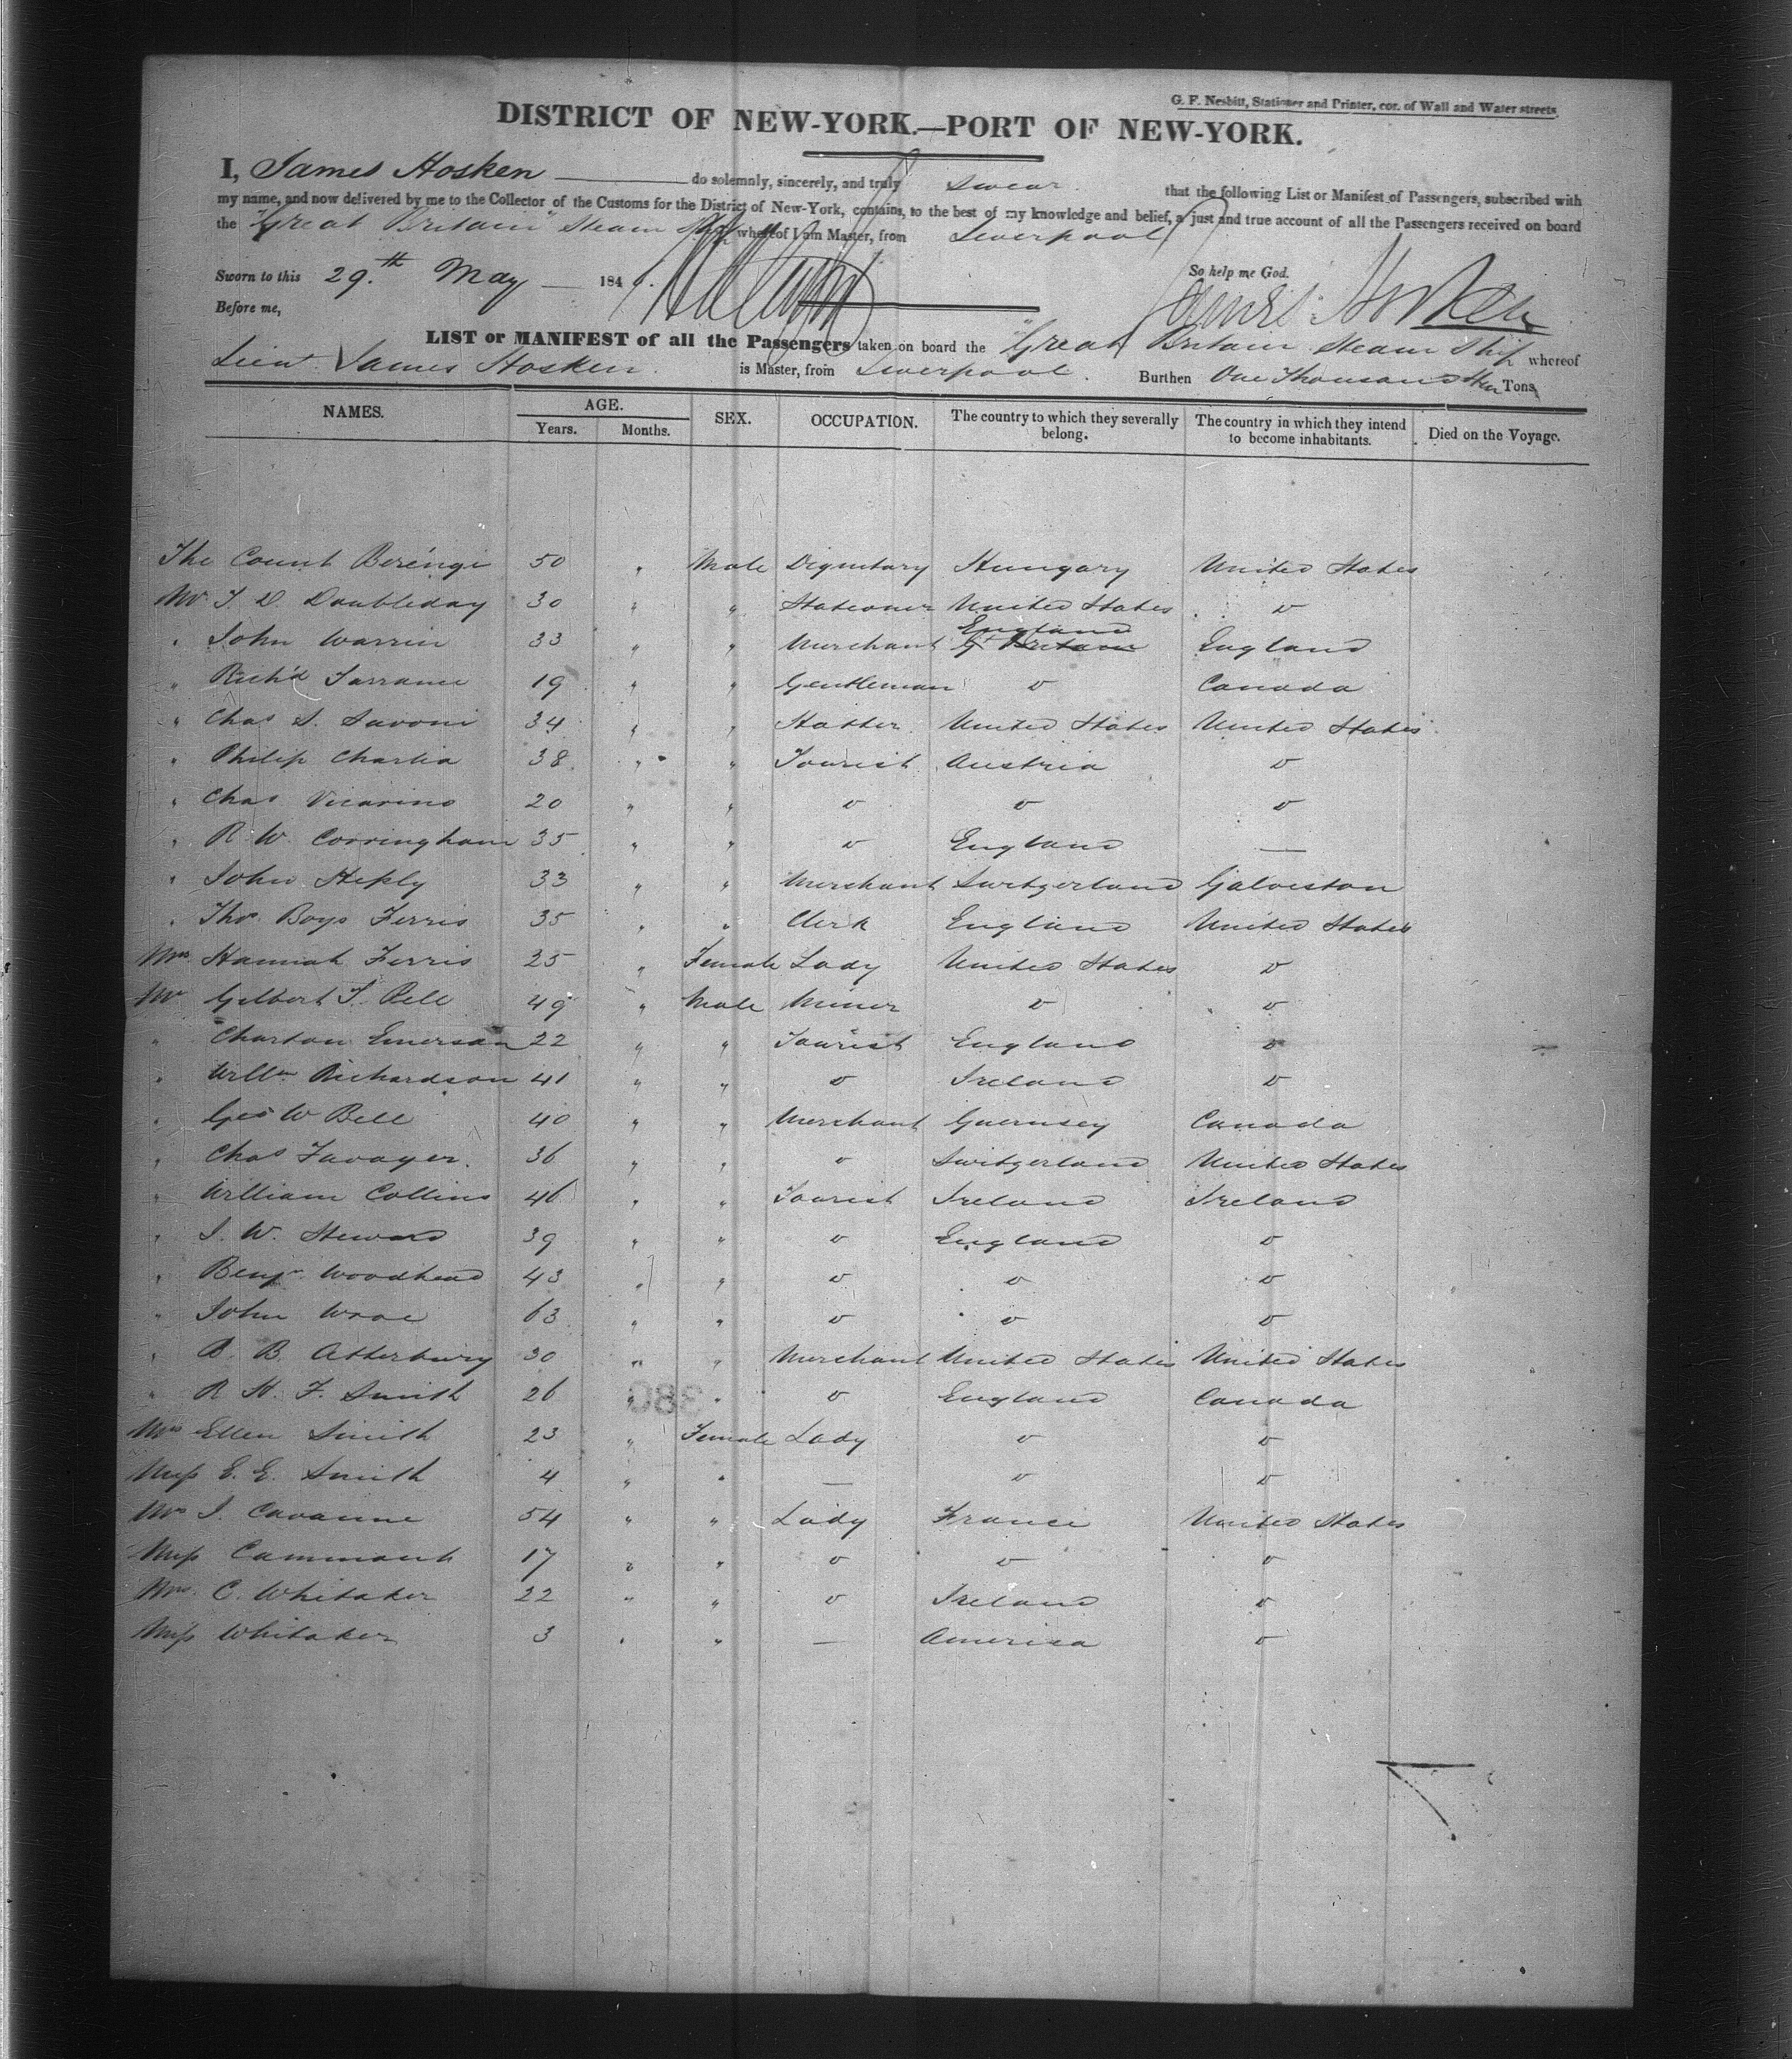 G. F. Nesbitt, Stationer and Printer, cor. of Wall and Water streets.
DISTRICT OF NEW-YORK.—PORT OF NEW-YORK.
I, James Hosken do solemnly, sincerely, and truly swear that the following List or Manifest of Passengers, subscribed with
my name, and now delivered by me to the Collector of the Customs for the District of New-York, contains, to the best of my knowledge and belief, a just and true account of all the Passengers received on board
the "Great Britain" Steam Ship whereof I am Master, from Liverpool
Sworn to this 29.th May 1846. So help me God.
Before me, James Hosken
LIST or MANIFEST of all the Passengers taken on board the "Great Britain Steam Ship whereof
Lieut James Hosken is Master, from Liverpool. Burthen One Thousand Tons
NAMES. AGE. SEX. OCCUPATION. The country to which they severally belong. The country in which they intend to become inhabitants. Died on the Voyage.
Years. Months.
The Count Berengi 50 " Male Dignitary Hungary United States
Mr T. D. Doubleday 30 " " Stationer United States o
" John Warrin 33 " " Merchant England G Britain England
" Rich'd Torrance 19 " " Gentleman o Canada
" Chas S. 34 " " Hatter United States United States
" Philip Charlia 38 " " Tourist Austria o
" Chas Vicarino 20 " " o o o
" R. W. Corringham 35 " " o England —
" John Heply 33 " " Merchant Switzerland Galveston
" Thos Boys Ferris 35 " " Clerk England United States
Mrs Hannah Ferris 25 " Female Lady United States o
Mr Gilbert T. Pell 49 " Male Miner o o
" Charlton Emerson 22 " " Tourist England o
" Willm Richardson 41 " " o Ireland o
" Geo W Bell 40 " " Merchant Guernsey Canada
" Chas Favayer. 36 " " o Switzerland United States
" William Collins 46 " " Tourist Ireland Ireland
" J. W. Steward 39 " " o England o
" Benjn Woodhead 43 " " o o o
" John Wroe 63 " " o o o
" B. B. Atterbury 30 " " Merchant United States United States
" R. H. F. Smith 26 " " o England Canada
Mrs Ellen Smith 23 " Female Lady o o
Miss E. E. Smith 4 " " — o o
Mrs J. Cavanne 54 " " Lady France United States
Miss Cammank 17 " " o o o
Mrs. C. Whitaker 22 " " o Ireland o
Miss Whitaker 3 " " — America o